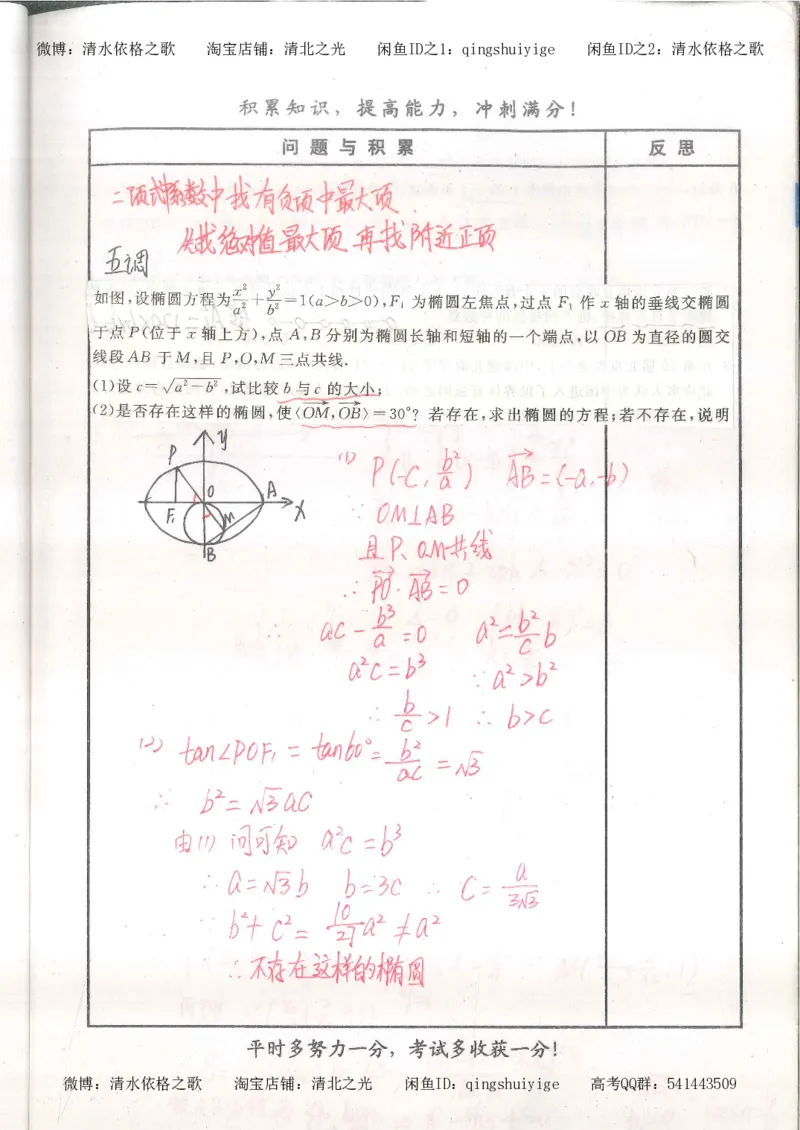 微博：清水依格之歌 淘宝店铺：清北之光 闲鱼ID之1：qingshuiyige 闲鱼ID之2：清水依格之歌
积累知识，提高能力，冲刺满分！
问题与积累 反思
二项式系数中找有负项中最大项
先找绝对值最大项 再找附近正项
五调
如图,设椭圆方程为x²/a²+y²/b²=1(a>b>0),F₁ 为椭圆左焦点,过点 F₁ 作 x 轴的垂线交椭圆
于点 P(位于 x 轴上方),点 A,B 分别为椭圆长轴和短轴的一个端点,以 OB 为直径的圆交
线段 AB 于 M,且 P,O,M 三点共线.
(1)设 c=√(a²-b²),试比较 b 与 c 的大小;
(2)是否存在这样的椭圆,使⟨OM,OB⟩=30°? 若存在,求出椭圆的方程;若不存在,说明
y
P
O
A
F₁
M
x
B
(1) P(-c, b²/a) AB=(-a,-b)
∵ OM⊥AB
且P、O、M共线
∴ PO·AB=0
∴ ac-b³/a=0 a²=b²/c b
a²c=b³ ∵ a²>b²
∴ b/c>1 ∴ b>c
(2) tan∠POF₁=tan60°=b²/ac=√3
∴ b²=√3ac
由(1)问可知 a²c=b³
∴ a=√3b b=3c ∴ c=a/3√3
∵ b²+c²=10/27a²≠a²
∴不存在这样的椭圆
平时多努力一分，考试多收获一分！
微博：清水依格之歌 淘宝店铺：清北之光 闲鱼ID：qingshuiyige 高考QQ群：541443509